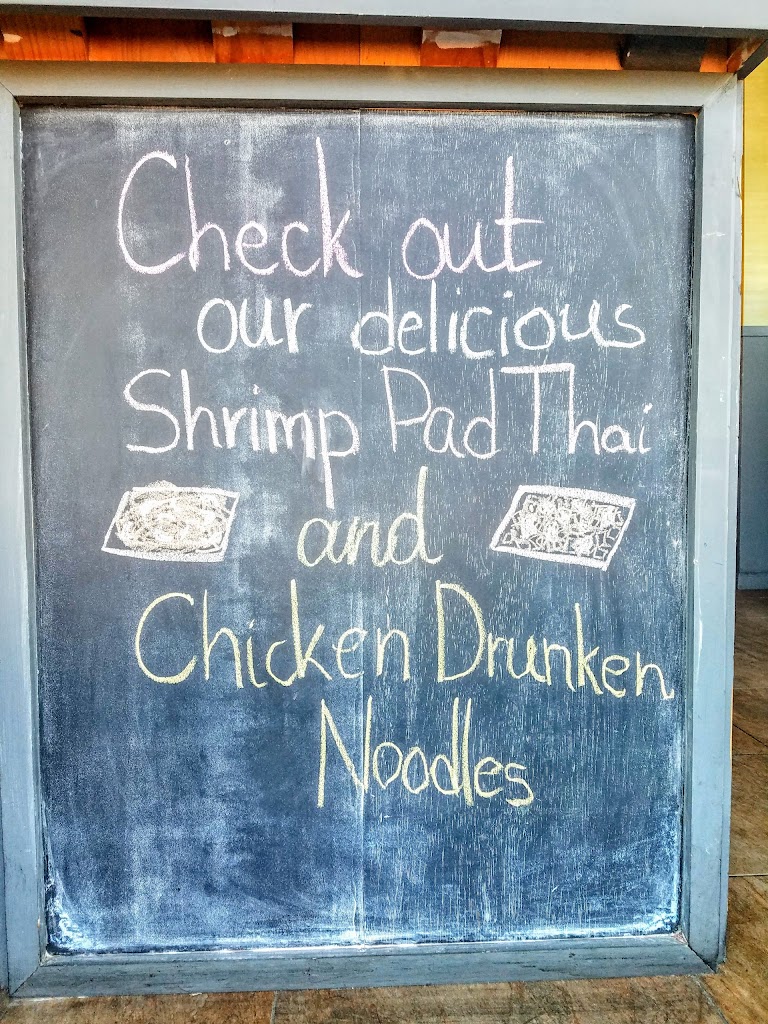 Check out
our delicious
Shrimp Pad Thai
and
Chicken Drunken
Noodles